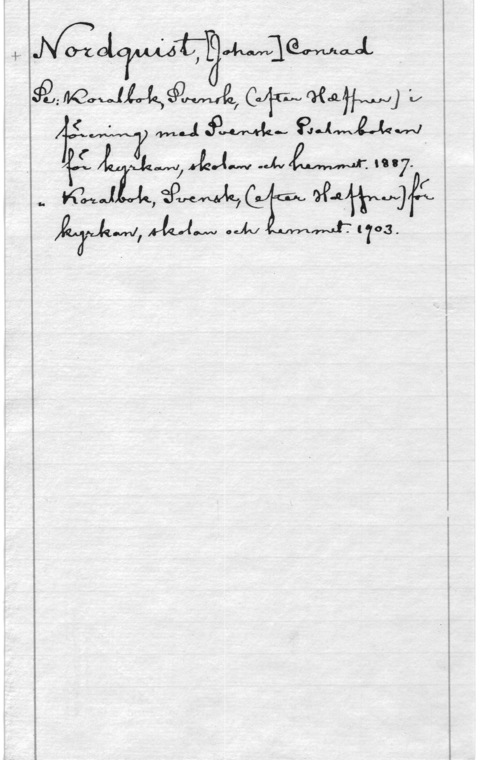 + Nordquist, [Johan] Conrad
Se: Koralbok, Svensk, (efter Hæffner) i
förening med Svenska Psalmboken
för kyrkan, skolan och hemmet. 1887.
" Koralbok, Svensk, (efter Hæffner) för
kyrkan, skolan och hemmet. 1903.